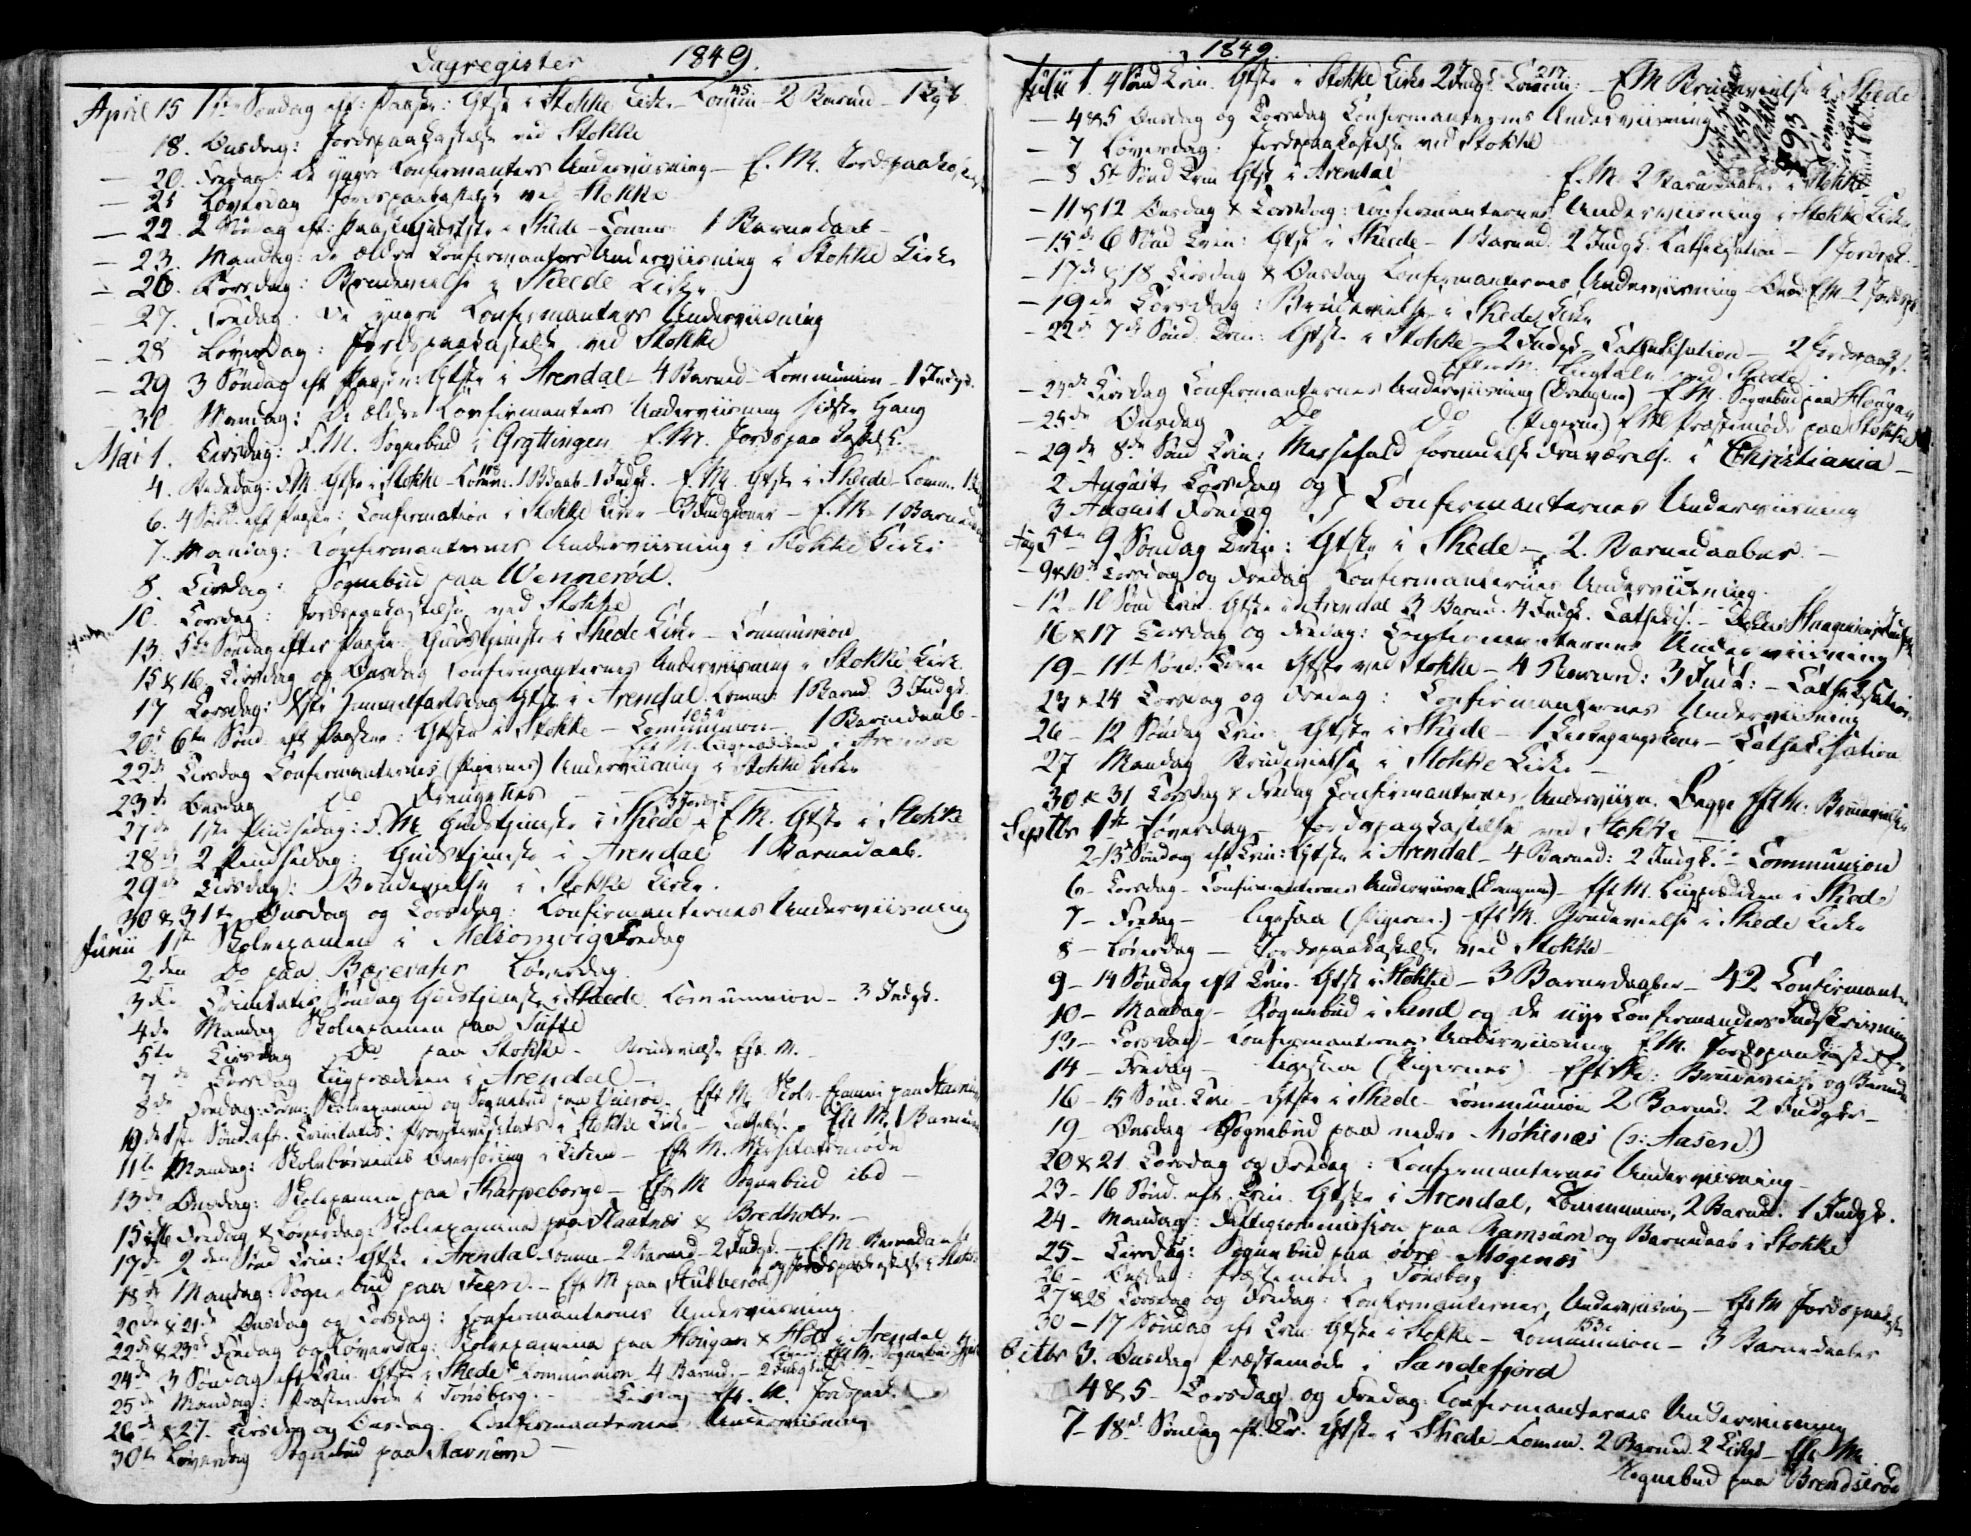 Dagregister 1849.
April 15 1ste Søndag eft: Paaske: Gtste i Stokke Kirke - Commun 45 - 2 Barned - 1
18. Onsdag: Jordspaakastelse ved Stokke
— 20. Fredag: De yngre Confirmanters Underviisning - E. M. Jordspaak
— 21 Løverdag Jordspaakastelse ved Stokke
— 22. 2 Søndag eft: Paaske Gudstjste i Skede - Commun 1 Barnedaab -
— 23. Mandag: De ældre Confirmanters Underviisning i Stokke Kirke
— 26. Torsdag: Brudevielse i Skeede Kirke
27. Fredag: De yngre Confirmanters Underviisning
— 28 Løverdag: Jordspaakastelse ved Stokke
— 29 3 Søndag eft Paaske: Gtste i Arendal - 4 Barned - Communion - 1 Indgk.
30. Mandag: De ældre Confirmanters Underviisning sidste Gang
Mai 1. Tirsdag: F.M. Sognebud i Grøttingen E.M. Jordspaakastelse.
4. Bededag: F.M. Gtste i Stokke - Comm. 108 1 Bdaab. 1 Indgk. - E.M. Gtste i Skeede - Comm. 1
6. 4 Sønd. eft Paaske: Confirmation i Stokke Kirke - 3 Indgkoner - E. M. 1 Barnedaab
7. Mandag: Confirmanternes Underviisning i Stokke Kirke
8. Tirsdag: Sognebud paa Wennerød.
10. Torsdag: Jordspaakastelse ved Stokke
13. 5te Søndag efter Paaske Gudstjeneste i Skede Kirke - Communion
15 & 16. Tirsdag og Onsdag Confirmanternes Underviisning i Stokke Kirke
17 Torsdag: Xsti Himmelfartsdag Gtste i Arendal Comm: 1 Barned. 3 Indgk.
20d 6te Sønd. eft Paaske: Gtste i Stokke - Communion 105 - 1 Barnedaab -
Eft M. Liigprædiken i Arendal
22de Tirsdag Confirmanternes (Pigernes) Underviisning i Stokke Kirke
23de Onsdag do Drengenes
27de 1ste Pindsedag: F.M. Gudstjeneste i Skede 3 Jordsp & E.M. Gtste i Stokke
28de 2 Pindsedag: Gudstjeneste i Arendal 1 Barnedaab.
29de Tirsdag: Brudevielse i Stokke Kirke.
30 & 31te Onsdag og Torsdag: Confirmanternes Underviisning
Junii 1ste Skoleexamen i Melsomvig Fredag
2den Do paa Bogevaher Løverdag
3die Trinitatis Søndag Gudstjeneste i Skeede Communion - 3 Indgk.
4de Mandag Skoleexamen paa Tufte
5te Tirsdag Do paa Stokke - Brudevielse Eft. M. -
7de Torsdag Liigprædiken i Arendal -
8de Fredag: Form: Skoleexamen og Sognebud paa - Eft M. Skole-Examen paa
10de 1ste Sønd. eft. Trinitatis: Provstevisitats i Stokke Kirke - Cathekis. - Eft M. 1 Barned
11te Mandag: Skolebørnenes Overhøring i Kirken - Eft M. Visitatsmøde
13de Onsdag: Skoleexamen paa Skarpeborge - Eft M Sognebud ibd -
15 & 16 Fredag & Løverdag: Skoleexamen paa Flaatnes & Bredholt. -
17de 2den Sønd Trin: Gtste i Arendal Comm - 2 Barned - 2 Indgk. - E.M. Barnedaab
og Jordspaakastelse i Stokke
18de Mandag: Sognebud paa Feen. - Eft M paa Stubberød
20de & 21de Onsdag og Torsdag: Confirmanternes Underviisning.
22de & 23de Fredag og Løverdag: Skoleexamina paa Hougan & Holt i Arendal
Løverd. Eft M. Sognebud
24de 3 Søndag eft Trin. Gtste i Skede Communion 4 Barned. - 2 Indgk -
25de Mandag: Præstemøde i Tønsberg. - Tirsdag Eft. M. Jordspaak.
26de & 27. Tirsdag og Onsdag. Confirmanternes Underviisning
30te Løverdag Sognebud paa Stavnum -
1849.
Julii 1. 4 Sønd Trin. Gtste i Stokke Kirke 2 Indgk. Commun: 217 - E M Brudevielse i Skede
— 4 & 5 Onsdag og Torsdag Confirmanternes Underviisning
1849
793
Comm
— 7 Løverdag: Jordspaakastelse ved Stokke
— 8 5te Sønd Trin Gtste i Arendal E. M. 2 Barnedaaber i Stokke
— 11 & 12 Onsdag & Torsdag: Confirmanternes Underviisning i Stokke Kirke
— 15de 6 Sønd Trin: Gtste i Skeede - 1 Barned: 2 Indgk. Cathekisation - 1 Jordspk.
— 17de & 18 Tirsdag & Onsdag Confirmanternes Underviisning - Onsd E M - 2 Jordsp
— 19de Torsdag: Brudevielse i Skede Kirke
— 22de 7de Sønd. Trin: Gtste i Stokke - 2 Indgk. Cathekisation - 2 Jordspaak.
Efterm. Liigtale ved Skede
— 24de Tirsdag Confirmanternes Underviisning (Drengene) - E.M. Sognebud paa Hougan
— 25de Onsdag Do do (Pigerne) E M Præstemøde paa Stokke
— 29de 8de Sønd Trin: Messefald formedelst Fraværelse i Christiania -
2 August Torsdag og
3 August Fredag } Confirmanternes Underviisning
Aug 5te 9 Søndag Trin: Gtste i Skede - 2. Barnedaaber. -
— 9 & 10 Torsdag og Fredag Confirmanternes Underviisning.
— 12 - 10 Sønd Trin. Gtste i Arendal 3 Barned. 4 Indgk. Cathekis. -
16 & 17 Torsdag og Fredag: Confirmanternes Underviisning
19 - 11te Sønd: Trin Gtste ved Stokke - 4 Barned: 3 Indk: - Cathekisation
23 & 24 Torsdag og Fredag: Confirmanternes Underviisning
26 - 12 Søndag Trin: Gtste i Skede - 1 Kirkegangskone - Cathekisation
27 Mandag Brudevielse i Stokke Kirke -
30 & 31 Torsdag & Fredag Confirmanternes Underviisn. Begge Eft M: Brudevielser
Septbr 1ste Løverdag - Jordspaakastelse ved Stokke -
2 - 13 Søndag eft Trin: Gtste i Arendal - 4 Barned: 2 Indgk. - Communion
6 - Torsdag - Confirmanternes Underviisn. (Drengene) - Eft M. Liigprædiken i Skede
7 - Fredag - ligesaa (Pigerne.) Eft M. Brudevielse i Skede Kirke
8 - Løverdag - Jordspaakastelse ved Stokke -
9 - 14 Søndag eft Trin. Gtste i Stokke - 3 Barnedaaber - 42 Confirmanter
10 - Mandag - Sognebud i Sund og de nye Confirmanders Indskrivning
13 - Torsdag - Confirmanternes Underviisning E M. Jordspaakastelse
14 - Fredag - ligesaa (Pigernes) - Eft M: Brudevielse og Barned
16 - 15 Sønd. Trin - Gtste i Skede - Communion 2 Barned. 2 Indgk. -
19 - Onsdag Sognebud paa nedre Møkenæs (ɔ: Aasen)
20 & 21 Torsdag og Fredag: Confirmanternes Underviisning -
23 - 16 Sønd. eft. Trin. Gtste i Arendal, Communion, 2 Barned. 1 Indgk.
24 - Mandag: Fattigcommission paa Ramsum og Barnedaab i Stokke
25 - Tirsdag: Sognebud paa øvre Mogenæs
26 - Onsdag: Præstemøde i Tønsberg
27 & 28 Torsdag og Fredag: Confirmanternes Underviisning - Eft M Jordspaak
30 - 17 Søndag eft Trin. Gtste i Stokke - Communion 153 - 3 Barnedaaber
Octbr 3. Onsdag Præstemøde i Sandefjord
4 & 5 - Torsdag og Fredag: Confirmanternes Underviisning
7 - 18de Søndag eft. Tr. Gtste i Skede - Comm. 2 Barned. 2 - Eft M.
Sognebud paa Brendserød